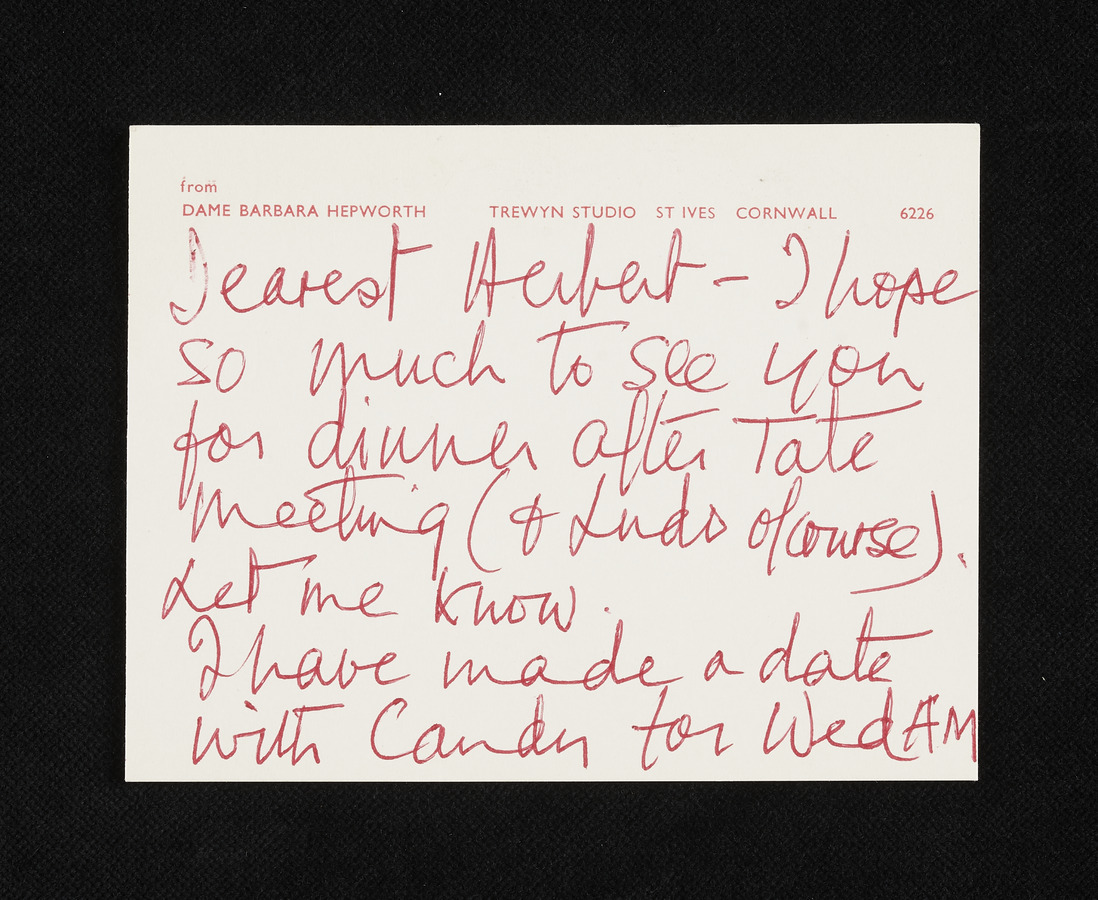 from
DAME BARBARA HEPWORTH TREWYN STUDIO ST IVES CORNWALL 6226
Dearest Herbert – I hope
so much to see you
for dinner after Tate
meeting (& Ludo of course).
Let me know.
I have made a date
with Candy for Wed AM